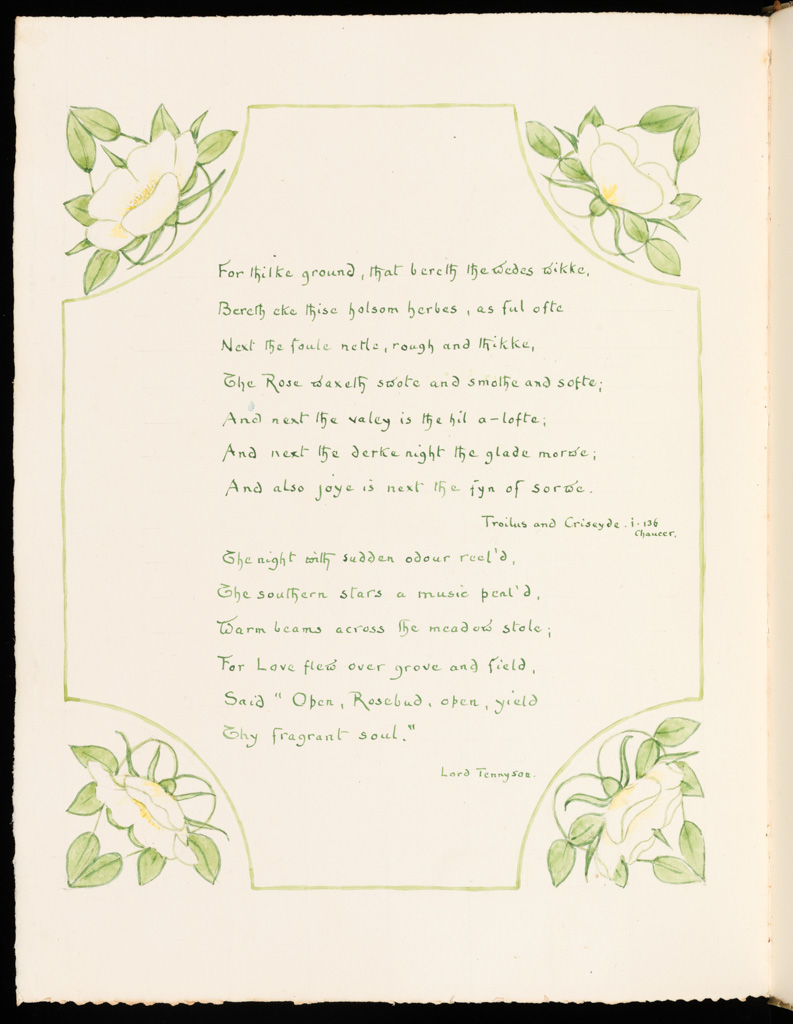 For thilke ground, that bereth the wedes wikke,
Bereth eke thise holsom herbes, as ful ofte
Next the foule netle, rough and thikke,
The Rose waxeth swote and smothe and softe;
And next the valey is the hil a-lofte;
And next the derke night the glade morwe;
And also joye is next the fyn of sorwe.
Troilus and Criseyde. i. 136
Chaucer.
The night with sudden odour reel'd,
The southern stars a music peal'd,
Warm beams across the meadow stole;
For Love flew over grove and field,
Said "Open, Rosebud, open, yield
Thy fragrant soul."
Lord Tennyson.